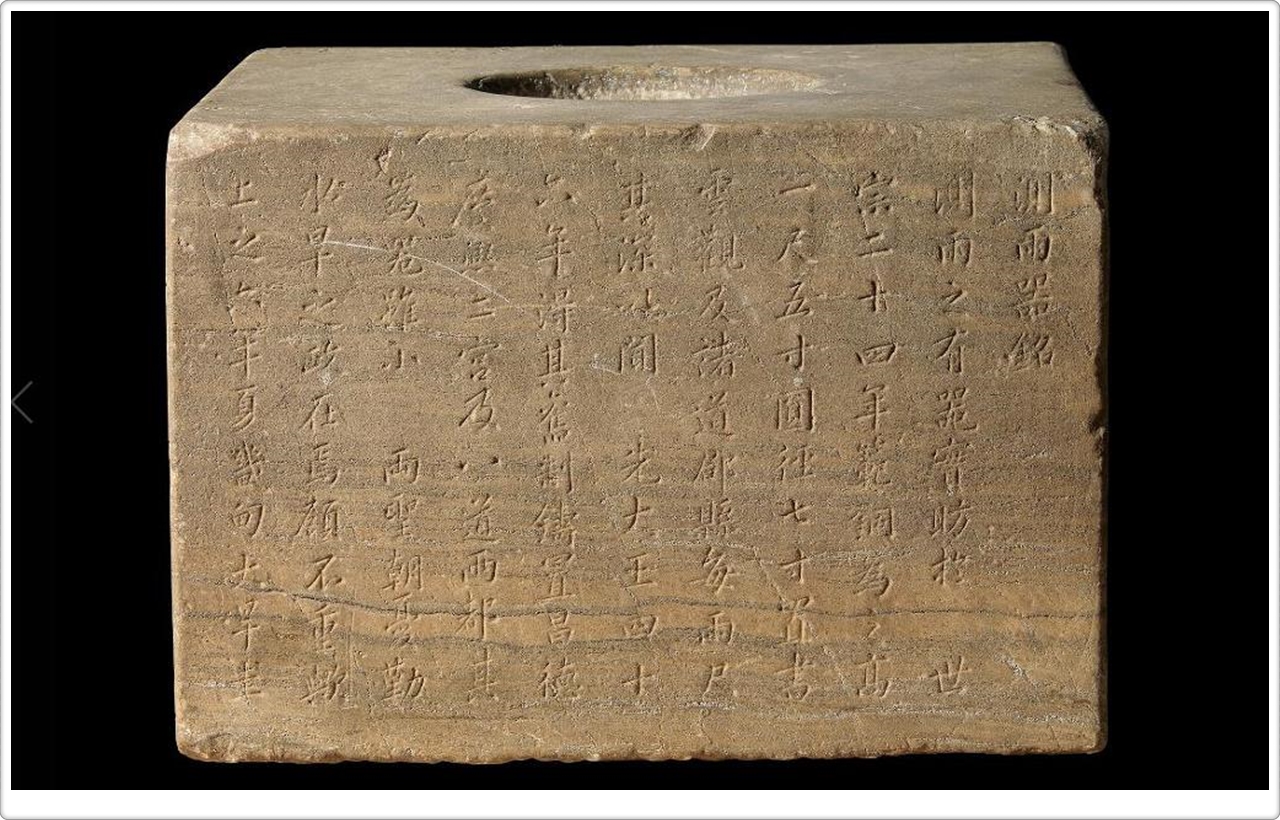 測雨器銘
測雨之有器實昉於 世
宗二十四年範銅為之高
一尺五寸圓徑七寸置書
雲觀及諸道郡縣每雨尺
其深以聞 先大王四十
六年得其舊制鑄置昌德
慶熙二宮及八道兩都其
為器雖小 兩聖朝憂勤
水旱之政在焉顧不重歟
上之六年夏畿甸大旱圭